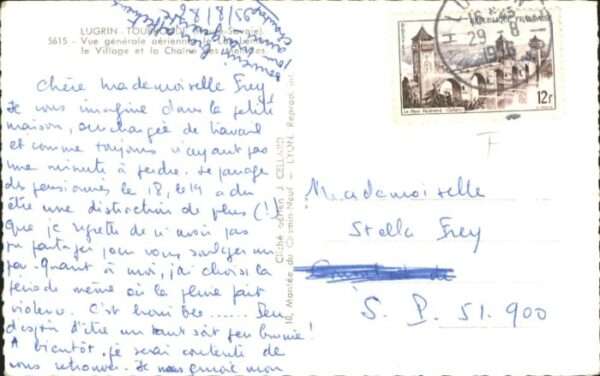 LUGRIN - TOURRONDE (Haute-Savoie)
5615 - Vue générale aérienne
le Village et la Chaîne des Memises
Chère Mademoiselle Frey,
Je vous imagine dans la petite
maison, surchargée de travail
et comme toujours n'ayant pas
une minute à perdre. Le passage
des pensionnés le 18, et 19 a dû
être une distraction de plus (!)
Que je regrette de n'avoir pas
pu partager pour vous soulager un
peu. Quant à moi, j'ai choisi la
période même où la pluie fait
violence. C'est horrible ......
d'être un tant soit peu bronzée !
A bientôt, je serai contente de
vous retrouver. Je
Cliché aérien J. CELLARD
18, Montée du Chemin-Neuf - LYON. Reprod. int.
29-8
1956
POSTE FRANÇAISE
Le Pont Valentré - Cahors
12F
F
Mademoiselle
Stella Frey
S. P. 51.900